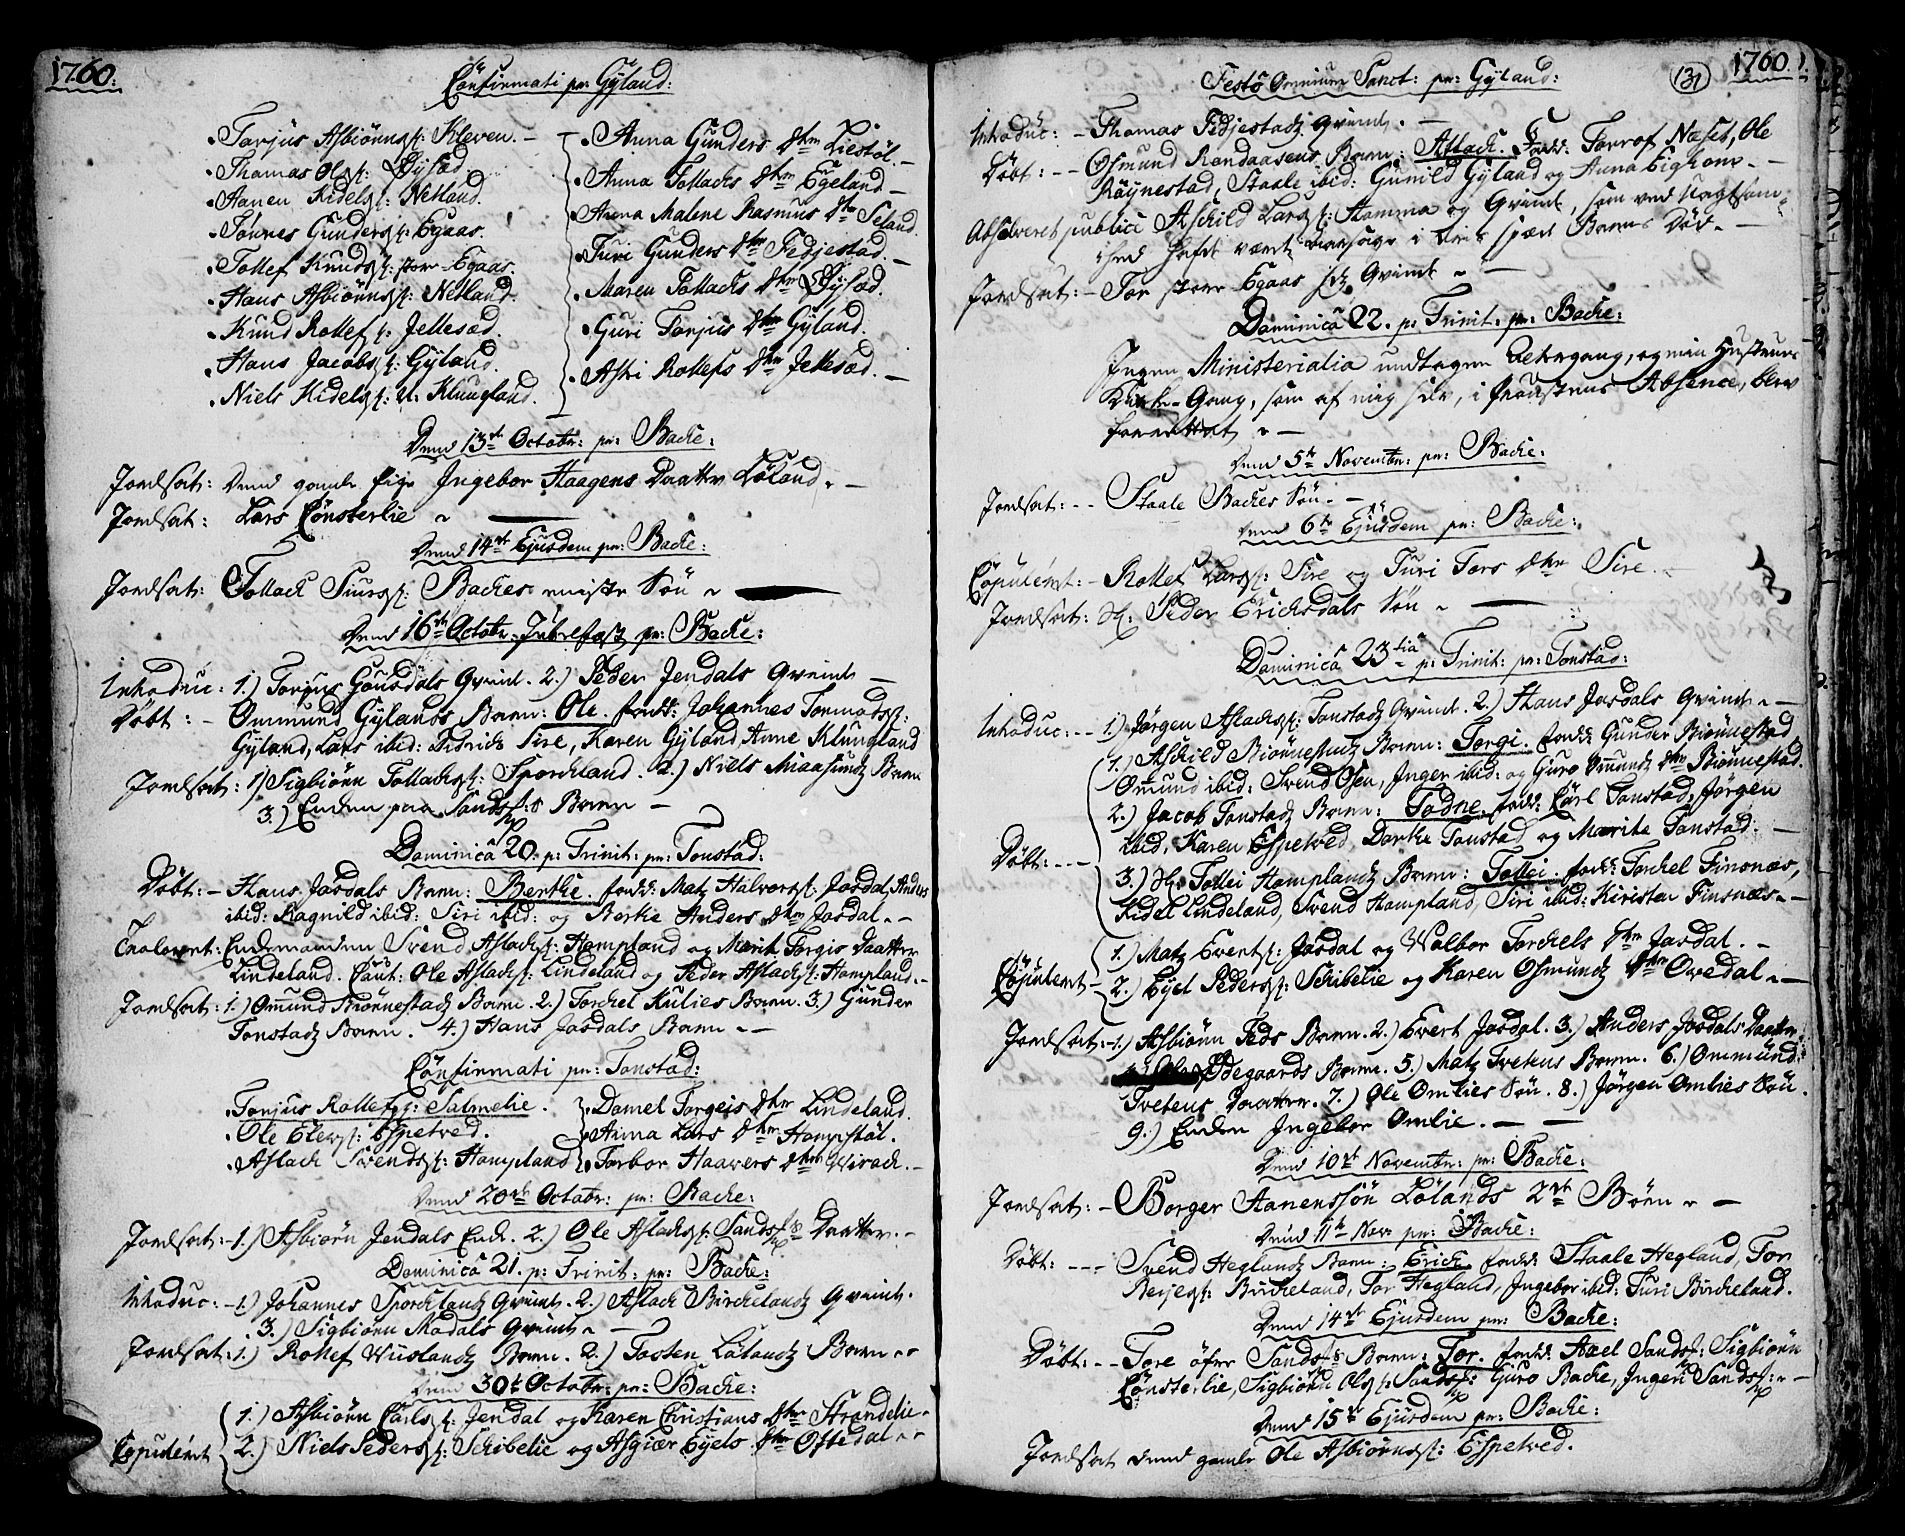 1760.
Confirmati pr: Gÿland:
Tarjus Asbiörns: Kleven. –
Thomas Ols: Öysæd.
Hanen Kidels: Netland.
Tönnes Gunders: Egaas.
Tollef Knuds: store Egaas.
Hans Asbiörns: Netland.
Knud Rollefs: Jellesæd.
Hans Jacobs: Gÿland.
Niels Kidels: N. Klungland.
Anna Gunders dtr Liestöl. –
Anna Tollachs dtr Egeland –
Anna Malene Rasmus dtr Seland.
Turi Gunders dtr Fedjestad. –
Maren Tollachs dtr Öysæd.
Guri Tarjus dtr Gÿland.
Asbi Rollefs dtr Jellesæd. –
Dend 13de Octobr: pr: Backe:
Jordsat: Dend gamle Pige Ingebor Haagens Daatter Löland. –
Jordsat: Lars Cönsterlie
Dend 14de Ejusdem pr: Backe:
Jordsat: Tollach Siurs: Backes miste Sön
Dend 16de Octobr: Jubelfest pr: Backe:
Introduc: 1.) Tarjus Gousdals Qvinde. 2.) Peder Jendals Qvinde –
Döbt: – Ommund Gÿlands Barn: Ole. fadd: Johannes Tormods:
Gÿland, Lars ibid: Didrich Sire, Karen Gÿland, Anne Klungland
Jordsat: 1) Sigbiörn Tollachs: Sporchland. 2.) Niels Maasunds Barn
3.) Enden paa Sands: Barn –
Dominica 20. p: Trinit: pr: Tonstad:
Döbt: – Hans Josdals Barn: Berthe. fadd: Matz Halvors: Josdal, Anders
ibid: Ragnild ibid: Siri ibid: og Berte Anders dtr Josdal. –
Trolovet: Enkemanden Svend Aslachs: Hompland og Marit Torgis Daatter
Lindeland. Caut: Ole Aslachs: Lindeland og Peder Aslachs: Hompland. –
Jordsat: 1.) Omund Biönnestadz Barn. 2.) Torchel Kulies Barn. 3.) Gunder
Tonstadz Barn. 4.) Hans Josdals Barn –
Confirmati pr: Tonstad:
Tarjus Rollefs: Salmelie.
Ole Elevs: Espetved.
Aslach Svends: Hompland
Domel Torgeis dtr Lindeland.
Anna Lars dtr Hompstöl.
Torbor Haavers dtr Virach. –
Dend 20de Octobr: pr: Backe:
Jordsat: – 1.) Asbiörn Jendals Enk. 2.) Ole Aslachs: Sands: Daatter. –
Dominica 21. p: Trinit: pr: Backe:
Introduc: – 1.) Johannes Sporchlandz Qvinde. 2.) Aslach Birchelandz Qvinde.
3.) Sigbiörn Modals Qvinde –
Jordsat: 1.) Rollef Wüslandz Barn. 2.) Tosten Lölandz Barn
Dend 30te Octobr: pr: Backe:
Copuleret 1.) Asbiörn Carls: Jendal og Karen Christians dtr Strandelie.
2.) Niels Peders: Schibelie og Asgiær Eyels dtr Oftedal
1760.
131
Festo Omnium Sanct: pr: Gÿland:
Introduc: – Thomas Fedjestadz Qvinde. –
Döbt: – – Osmund Rondaasens Barn: Attach. fadd: Torrof Næset, Ole
Röÿnestad, Staale ibid: Gunild Gÿland og Anna Eighom. –
Absolveret publici Aschild Lars: Stomma og Qvinde, som ved Uagtsom-
hed hafde været aarsage i deris spæd Barns Död. –
Jordsat: – Tor store Egaas Qvinde –
Dominica 22. p: Trinit: pr: Backe:
Ingen Ministerialia undtagen Altergang, og min Hustrues
Kirke-Gang, som af mig selv, i Provstens Absence, blev
forrettet –
Dend 5te Novembr: pr: Backe:
Jordsat: – – Staale Backes Sön. –
Dend 6te Ejusdem pr: Backe:
Copuleret: – Rollef Lars: Sire og Turi Tors dtr Sire. –
Jordsat: Sl: Peder Erichsdals Sön
Dominica 23tia p: Trinit: pr: Tonstad:
Introduc: – – 1.) Jörgen Aslachs: Tonstadz Qvinde. 2.) Hans Josdals Qvinde –
Döbt: – – – 1.) Aschild Biönnestadz Barn: Torgi. fadd: Gunder Biönnestad
Omund ibid: Svend Osen, Inger ibid: og Guro Omundz dtr Biönnestad.
2.) Jacob Tonstadz Barn: Todne. fadd: Carl Tonstad, Jörgen
ibid, Karen Espetved, Dorthe Tonstad og Marite Tonstad. –
3.) Sl. Tollei Homplandz Barn: Tollei. fadd: Torchel Finsnæs,
Kidel Lindeland, Svend Hompland, Siri ibid: Kirsten Finsnæs. –
Copuleret – 1.) Matz Everts: Josdal og Valbor Torchels dtr Josdal. –
2.) Eyel Peders: Schibelie og Karen Osmundz dtr Ovedal. –
Jordsat: – 1.) Asbiörn Feds Barn. 2.) Evert Josdal. 3.) Anders Josdals Daatter.
Ödegaards Barn. 5.) Matz Tvetens Barn. 6.) Ommund
Tvetens Daatter. 7.) Ole Omlies Sön. 8.) Jörgen Omlies Sön.
9.) Enken Ingebor Omlie. – –
Dend 10de Novembr: pr: Backe:
Jordsat: – Borger Hanenssön Lölands 2de Börn –
Dend 11te Nov: pr: Backe:
Döbt: – – – Svend Heglandz Barn: Erich. fadd: Staale Hegland, Tor
Reÿes: Bircheland, Tor Hegland, Ingebor ibid: Turi Bircheland.
Dend 14de Ejusdem pr: Backe:
Döbt: – – Tore öfre Sands: Barn: Tor. fadd: Axel Sands: Sigbiörn
Cönsterlie, Sigbiörn Ols: Sands: Guro Backe, Ingen Sands: –
Dend 15de Ejusdem pr: Backe:
Jordsat dend gamle Ole Asbiörns: Espetved.